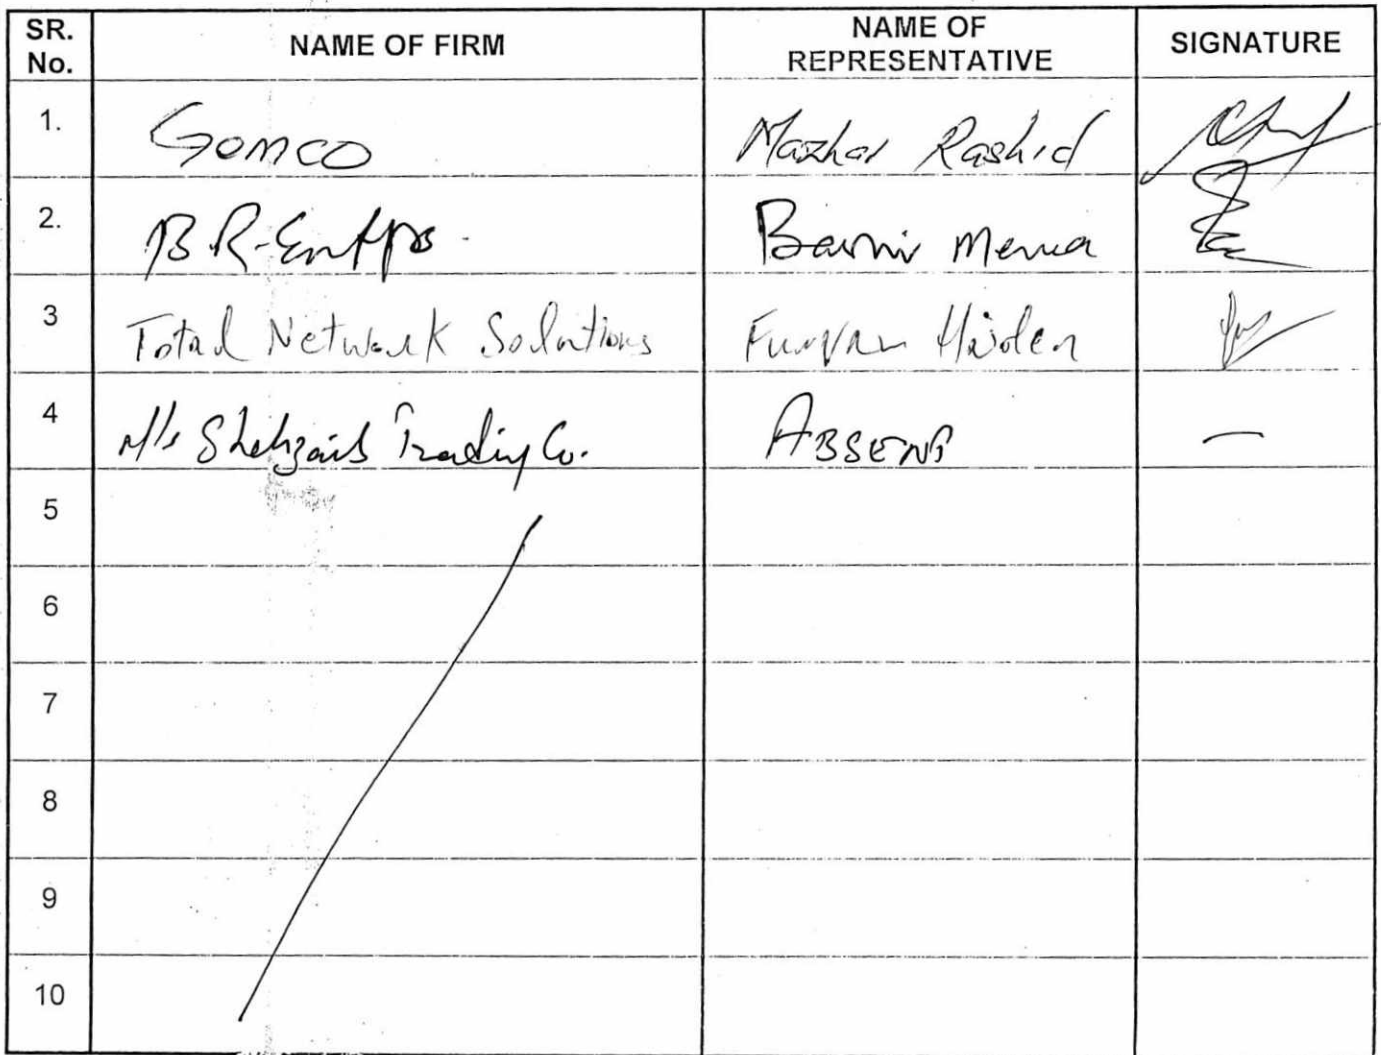 SR. No. NAME OF FIRM NAME OF REPRESENTATIVE SIGNATURE
1. Gomco Mazhar Rashid
2. BR-Entps.
3 Total Network Solutions Furqan Haider
4 M/s Shahzaib Trading Co. ABSENT —
5
6
7
8
9
10